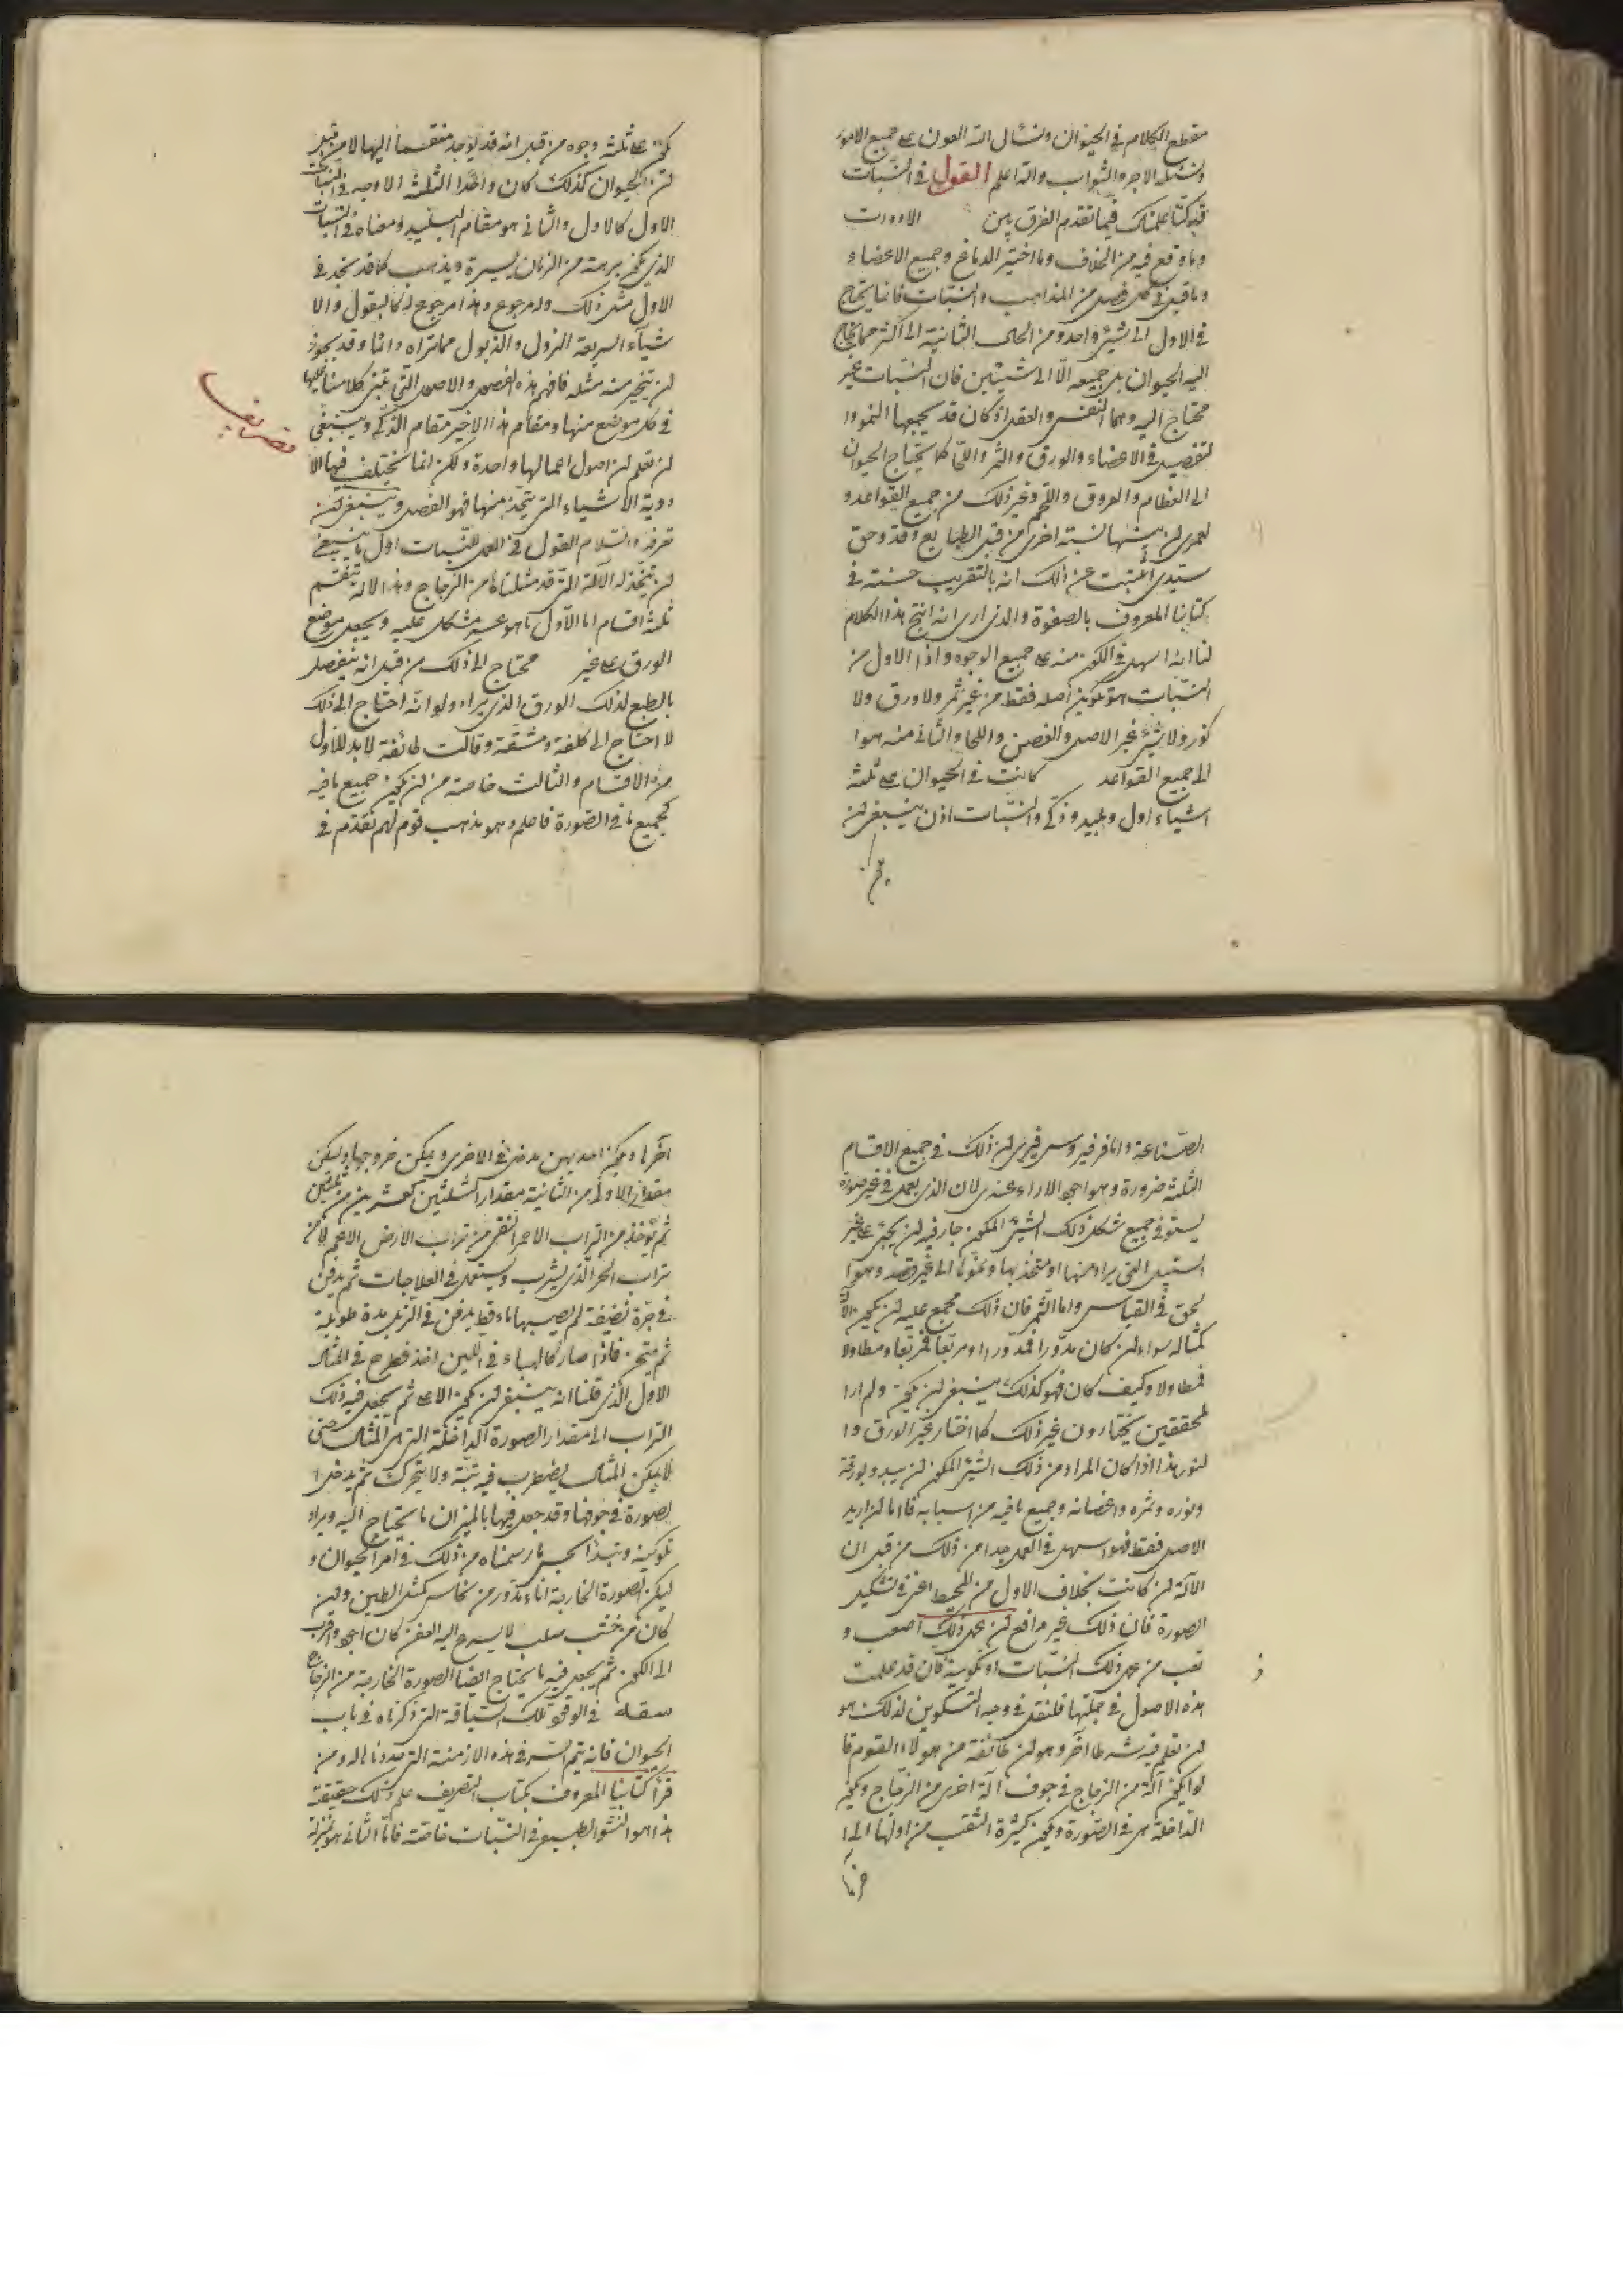 مقطع الكلام في الحيوان ونسأل الله العون على جميع الامور
ونسئله الاجر والثواب والله اعلم القول في النبات
قد كنا علمناك فيما تقدم الفرق بين الادوات
وما وقع فيه من الخلاف وما اختير الدماغ وجميع الاعضاء و
وما قيل في كل فصل من المذاهب والنبات فانما يحتاج
في الاول الى شيئ واحد ومن الحال الثانية الى اكثر مما يحتاج
اليه الحيوان بل جميعه الا الى شيئين فان النبات غير
محتاج اليه وهما النفس والعقل اذ كان قد يجمعها النمو وا
لتفصيل في الاعضاء والورق والثمر واللحا كما يحتاج الحيوان
الى العظام والعروق واللحم وغير ذلك من جميع القواعد و
لعمرى لن بينهما نسبة اخرى من قبل الطبايع وقد وحق
سيدى اثبتت عن ذلك انه بالتقريب حسنة في
كتابنا المعروف بالصفوة والذى ارى انه انتج هذا الكلام
لنا انه اسهل في الكون منه على جميع الوجوه واذا الاول من
النبات هو تكوين اصله فقط من غير ثمر ولا ورق ولا
نور ولا شيئ غير الاصل والغصن واللحا والثانى منه هوا
الى جميع القواعد كانت في الحيوان على ثلثة
اشياء اول وبليد وذكى والنبات اذن ينبغى لن
يكون
يكون على ثلثة وجوه من قبل انه قد يوجد منقسما اليها لا من قبل
لن الحيوان كذلك كان واحد الثلثة الاوجه في النبات
الاول كالاول والثانى هو مقام البليد ومعناه في النبات
الذى يكون برهة من الزمان يسيرة ويذهب كما قد نجد في
الاول مثل ذلك وله مرجوع وهذا مرجوع له كالبقول والا
شياء السريعة النزول والذبول مما تراه دائما وقد يجوز
لن يتخير منه مثله فافهم هذه الفصول والاصول التى نبنى كلامنا عليها
في كل موضع منها ومقام هذا الاخير مقام الذكى وينبغى
لن تعلم لن اصول اعمالها واحدة ولكن انما يختلف فيها الا
دوية الاشياء التى يتخذ منها فهو الفصل وينبغى لن
تعرفه والسلام القول في العمل للنبات اول ما ينبغى
لن تتخذ له الآلة التى قد مثلناها من الزجاج وهذه الآلة تنقسم
ثلثة اقسام اما الاول ما هو عسر مشكل عليه ويجعل موضع
الورق على غير محتاج الى ذلك من قبل انه ينفصل
بالطبع لذلك الورق الذى يراد ولو انه احتاج الى ذلك
لا احتاج الى كلفة ومشقة وقالت طائفة لا بد للاول
من الاقسام والثالث خاصة من لن يكون جميع ما فيه
كجميع ما في الصورة فاعلم وهو مذهب قوم لهم تقدم في
الصناعة واما فرفيروس فيرى لن ذلك في جميع الاقسام
الثلثة ضرورة وهو اجود الاراء عندى لان الذى يعمل في غير صورة
يستوفى جميع شكل ذلك الشيئ المكون جار فيه لن يجئ على غير
السبيل التى يراد منها او متخذ بها ونموها الى غير قصد وهو ا
لحق في القياس واما الثمر فان ذلك مجمع عليه لن يكون الآلة
كمثاله سواء لن كان مدورا فمدورا او مربعا فمربعا ومطاولا
فمطاولا وكيف كان فهو كذلك ينبغى لن يكون ولم ار ا
لمحققين يختارون غير ذلك كما اختار غير الورق وا
لنور هذا اذا كان المراد من ذلك الشيئ المكون لن يبدو بورقه
ونوره وثمره واغصانه وجميع ما فيه من اسبابه فاما لن اريد
الاصل فقط فهو اسهل في العمل جدا من ذلك من قبل ان
الآلة لن كانت بخلاف الاول من المحيط اعنى في تشكيل
الصورة فان ذلك غير دافع لن يجئ ذلك اصعب و
تعب من عمل ذلك النبات او تكوينه فان قد علمت
هذه الاصول في جملتها فلنقل في وجه التكوين لذلك هو
لن تعلم فيه شرطا آخر وهو لن طائفة من هولاء القوم قا
لوا يكون آلة من الزجاج في جوف آلة اخرى من الزجاج ويكون
الداخلة هى في الصورة ويكون كثيرة الثقب من اولها الى ا
خرها
آخرها ويكون احديهن يدخل في الاخرى ويمكن خروجها وليكن
مقدار الاولى من الثانية مقدار الثلثين كعشرين من ثلثين
ثم يؤخذ من التراب الاحمر النقى من تراب الارض
تراب الحر الذى يشرب ويستعمل في العلاجات ثم يدفن
في جرة نظيفة لم يصيبها ماء قط يدفن في الزبل مدة طويلة
ثم يمتحن فاذا صار كالهباء في اللين اخذ فطرح في المثال
الاول الذى قلنا انه ينبغى لن يكون الاعلى ثم يجعل فيه ذلك
التراب الى مقدار الصورة الداخلة التى هى المثال حتى
لا يمكن المثال يضطرب فيه بتة ولا يتحرك ثم يدخل ا
لصورة في جوفها وقد جعل فيها بالميزان ما يحتاج اليه ويراد
تكوينه ويبدأ بحسب ما رسمناه من ذلك في امر الحيوان و
ليكن الصورة الخارجة اناء مدور من نحاس كمثل الطين ولن
كان من خشب صلب لا يسرع اليه العفن كان اجود واقرب
الى الكون ثم يجعل فيه ما يحتاج ايضا الصورة الخارجة من الزجاج
في الوقود تلك السياقة التى ذكرناه في باب
الحيوان فانه يتم السر في هذه الازمنة التى حددنا له ومن
قرأ كتابنا المعروف بكتاب التصريف علم ذلك حقيقة
هذا هو النشو الطبيعى في النبات خاصة فاما الثانى هو بمنزلة